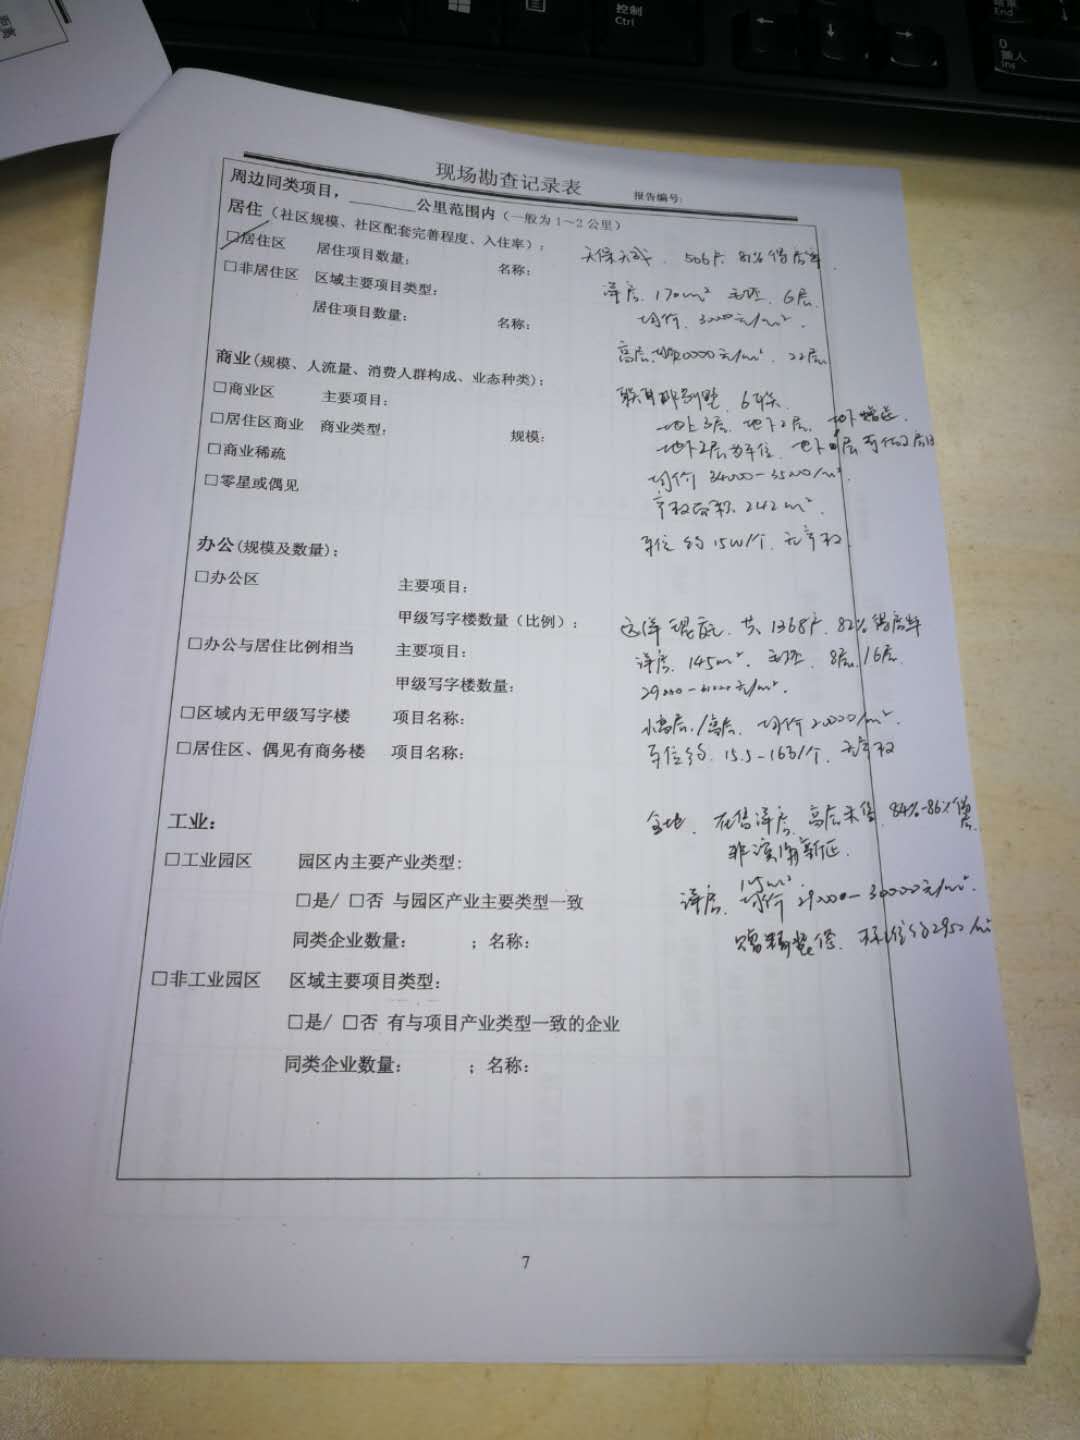 距离
控制
Ctrl
End
0
插入
Ins
现场勘查记录表
报告编号:
周边同类项目，______公里范围内（一般为1～2公里）
居住（社区规模、社区配套完善程度、入住率）：
□居住区 居住项目数量： 名称： 506户. 82%得房率.
□非居住区 区域主要项目类型： 洋房. 170m² 毛坯. 6层.
居住项目数量： 名称： 均价. 元/m².
高层. 元/m². 22层
商业(规模、人流量、消费人群构成、业态种类)：
□商业区 主要项目： 别墅. 6联.
□居住区商业 商业类型： 规模： 地上3层. 地下2层. 地下赠送.
□商业稀疏 地下2层为车位. 地下
□零星或偶见 均价 34000-35000/m².
产权面积. 242m².
办公(规模及数量)： 车位约15W/个. 无产权.
□办公区 主要项目：
甲级写字楼数量（比例）： 共1368户. 82%得房率
□办公与居住比例相当 主要项目： 洋房. 145m². 毛坯. 8层. 16层.
甲级写字楼数量： 元/m².
□区域内无甲级写字楼 项目名称： 小高层/高层. 均价20000/m².
□居住区、偶见有商务楼 项目名称： 车位约. 15.5-16万/个. 无产权
工业： 金地. 在售洋房. 高层未售. 84%-86%得房.
□工业园区 园区内主要产业类型:
□是/ □否 与园区产业主要类型一致 洋房. 均价 29000-30000元/m².
同类企业数量： ；名称： 精装修.
□非工业园区 区域主要项目类型:
□是/ □否 有与项目产业类型一致的企业
同类企业数量： ；名称：
7